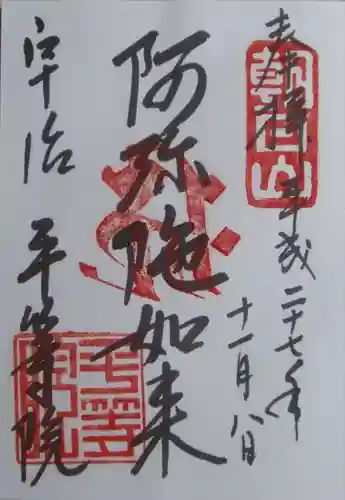 奉拝
朝日山
平成二十七年
十一月八日
阿弥陀如来
宇治 平等院
平等院印